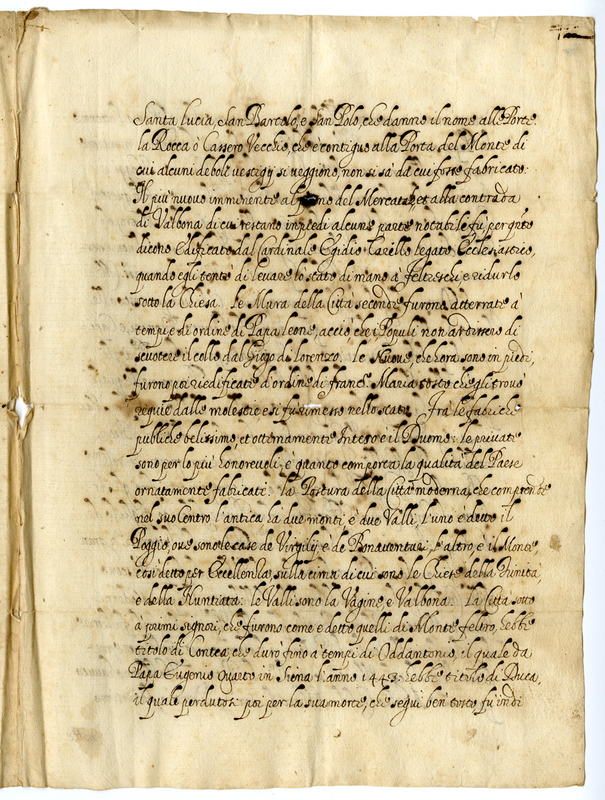 Santa Lucia, San Bartolo, e San Polo, che danno il nome alle Porte.
la Rocca ò Cassero Vecchio, che è contiguo alla Porta del Monte di
cui alcuni deboli vestigij si veggiono, non si sà da cui fosse fabricato:
Il più nuovo imminente al piano del Mercatale, et alla contrada
di Valbona di cui restano inpiedi alcune parte notabile fù per qnto
dicono edificato dal Cardinale Egidio Carillo legato Ecclesiastico,
quando egli tentò di levare lo stato di mano à Feltreschi, e ridurlo
sotto la Chiesa. Le Mura della Città seconde furono atterrate à
tempi, e di ordine di Papa Leone, acciò che i Populi non ardissero di
scuotere il collo dal Giogo di Lorenzo. Le Nuove, che hora sono in piedi,
furono poi riedificate d'ordine di Franc.º Maria tosto che gli trovò
requie dalle molestie e si fu rimesso nello stato. Frà le fabriche
publiche belissimo, et ottimamente inteso è il Duomo: le private
sono per lo più honorevoli, è quanto comporta la qualità del Paese
ornatamente fabricate. La Postura della Città moderna, che comprende
nel suo Centro l'antica hà due monti, è due Valli, l'uno è detto il
Poggio, ove sono le case de Virgilij, è de Bonaventuri, l'altro, è il Monte,
così detto per Eccellenza, sulla cima di cui sono le Chiese della Trinità,
e della Nuntiata: le Valli sono la Vagine, e Valbona. La Città sotto
à primi signori, che furono come è detto quelli di Monte Feltro, hebbe
titolo di Contea, che durò fino à tempi di Oddantonio, il quale da
Papa Eugenio Quarto in Siena l'anno 1443: hebbe titolo di Duca,
il quale perdutosi poi per la sua morte, che seguì ben tosto fu indi